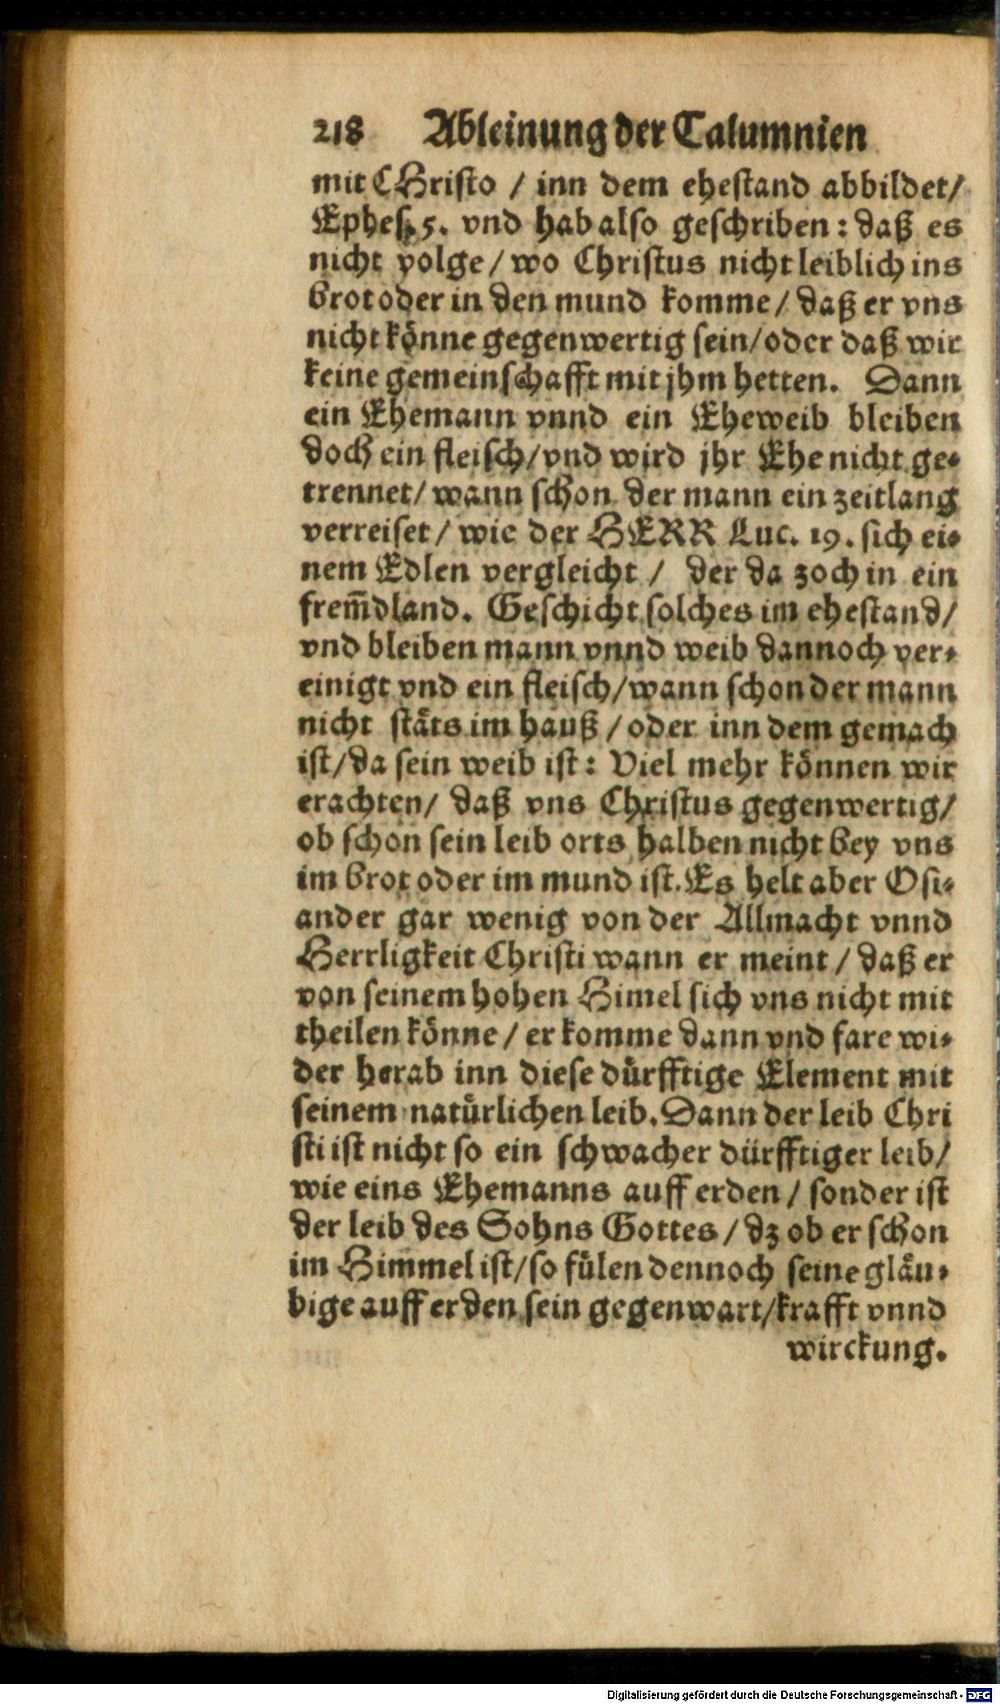 218 Ableinung der Calumnien
mit CHristo / inn dem ehestand abbildet/
Ephes. 5. vnd hab also geschriben: daß es
nicht volge/ wo Christus nicht leiblich ins
brot oder in den mund komme/ daß er vns
nicht könne gegenwertig sein/oder daß wir
keine gemeinschafft mit jhm hetten. Dann
ein Ehemann vnnd ein Eheweib bleiben
doch ein fleisch/vnd wird jhr Ehe nicht ge-
trennet/ wann schon der mann ein zeitlang
verreiset/ wie der HERR Luc. 19. sich ei-
nem Edlen vergleicht / der da zoch in ein
frem̃dland. Geschicht solches im ehestand/
vnd bleiben mann vnnd weib dannoch ver-
einigt vnd ein fleisch/wann schon der mann
nicht stäts im hauß / oder inn dem gemach
ist/da sein weib ist: Viel mehr können wir
erachten/ daß vns Christus gegenwertig/
ob schon sein leib orts halben nicht bey vns
im brot oder im mund ist. Es helt aber Osi-
ander gar wenig von der Allmacht vnnd
Herrligkeit Christi wann er meint / daß er
von seinem hohen Himel sich vns nicht mit
theilen könne / er komme dann vnd fare wi-
der herab inn diese dürfftige Element mit
seinem natürlichen leib. Dann der leib Chri
sti ist nicht so ein schwacher dürfftiger leib/
wie eins Ehemanns auff erden / sonder ist
der leib des Sohns Gottes / dz ob er schon
im Himmel ist/so fülen dennoch seine gläu-
bige auff erden sein gegenwart/krafft vnnd
wirckung.
Digitalisierung gefördert durch die Deutsche Forschungsgemeinschaft - DFG